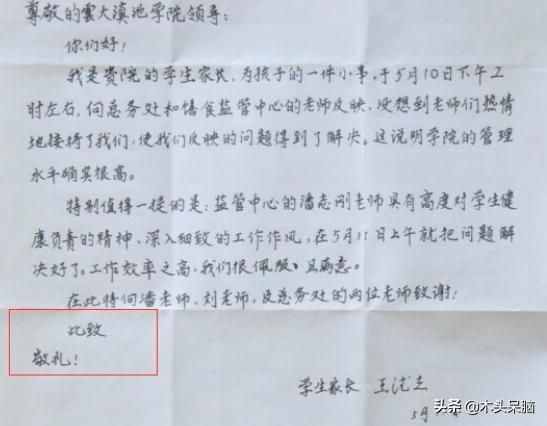 尊敬的雲大滇池学院领导:
你们好!
我是贵院的学生家长,为孩子的一件小事,于5月10日下午
时左右,向总务处和膳食监管中心的老师反映,没想到老师们热情
地接待了我们,使我们反映的问题得到了解决。这说明学院的管理
水平确实很高。
特别值得一提的是:监管中心的潘志刚老师具有高度对学生健
康负责的精神、深入细致的工作作风,在5月11日上午就把问题解
决好了,工作效率之高,我们很佩服、且满意。
在此特向潘老师、刘老师,及总务处的两位老师致谢!
此致
敬礼!
学生家长 王
5月
头条 @木头呆脑